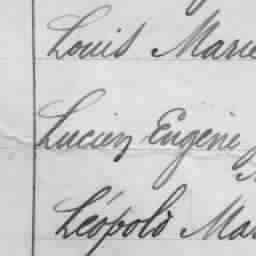 Louis Marie
Lucien Eugène
Léopold Mar